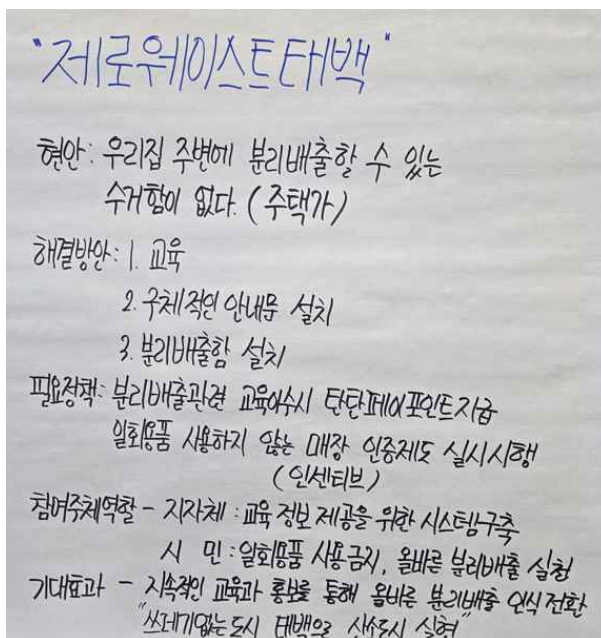 "제로웨이스트태백"
현안: 우리집 주변에 분리배출할 수 있는
수거함이 없다. (주택가)
해결방안: 1. 교육
2. 구체적인 안내문 설치
3. 분리배출함 설치
필요정책: 분리배출관련 교육이수시 탄탄페이포인트지급
일회용품 사용하지 않는 매장 인증제도 실시시행
(인센티브)
참여주체역할 - 지자체 : 교육 정보 제공을 위한 시스템구축
시 민 : 일회용품 사용금지, 올바른 분리배출 실천
기대효과 - 지속적인 교육과 홍보를 통해 올바른 분리배출 인식전환
"쓰레기없는도시 태백으로 산소도시 실현"